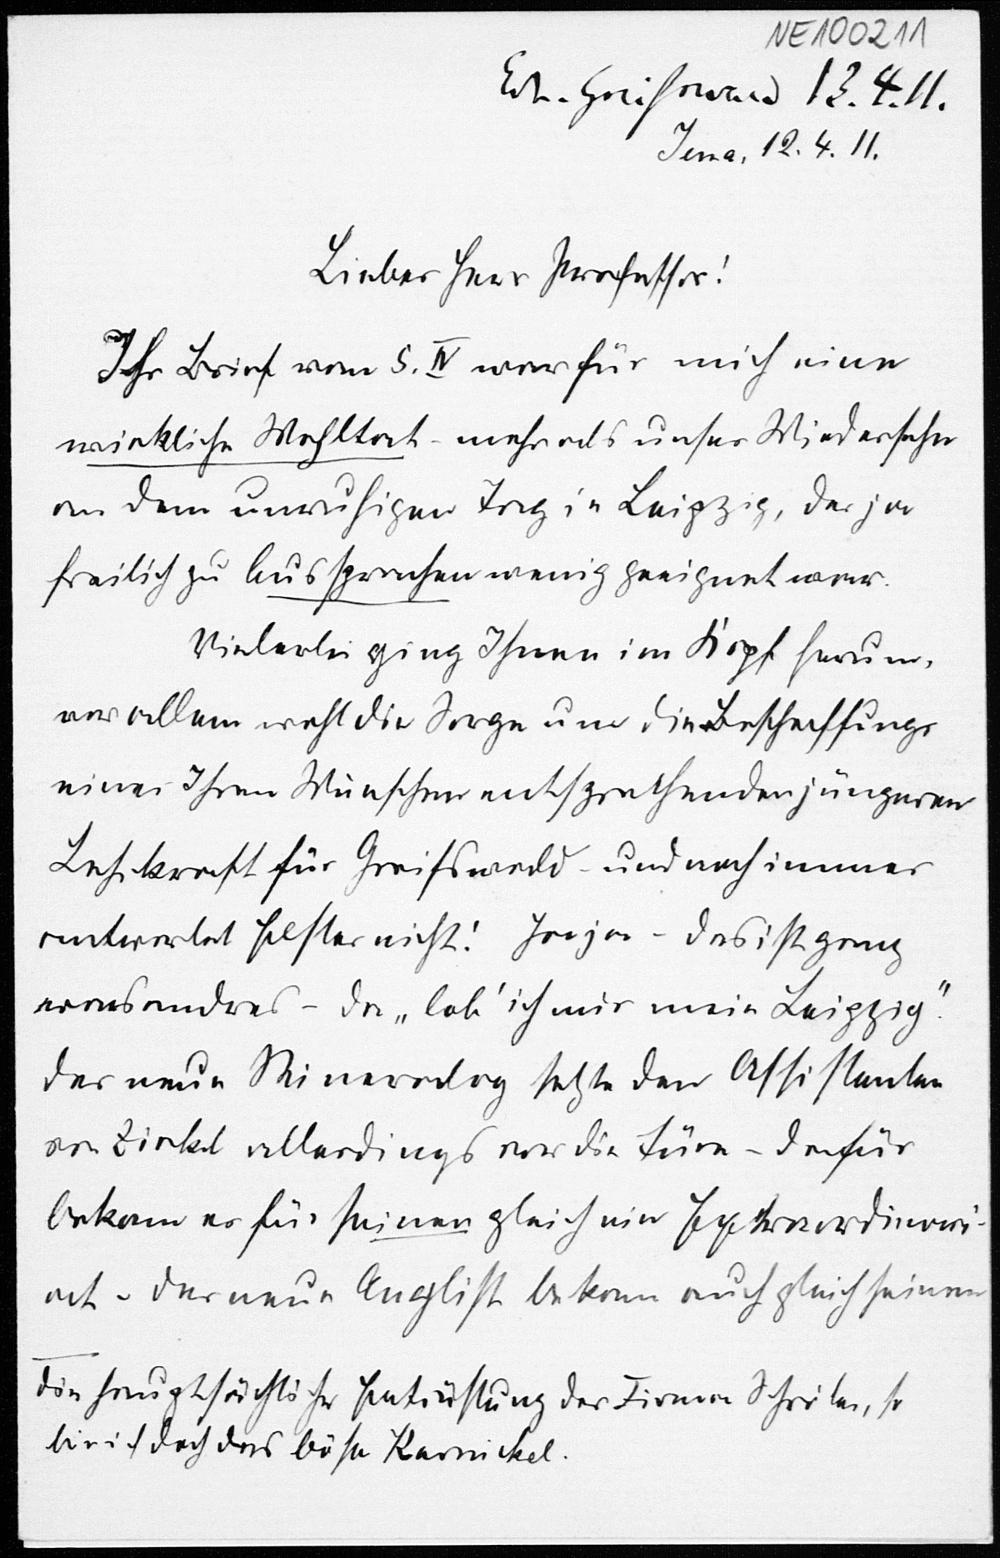 NE100211
Erh. Greifswald 13.4.11.
Jena, 12.4.11.
Lieber Herr Professor!
Ihr Brief vom 5. IV war für mich eine
wirkliche Wohltat - mehr als unser Wiedersehn
an dem unruhigen Tag in Leipzig, der ja
freilich zu Aussprachen wenig geeignet war.
Vielerlei ging Ihnen im Kopf herum,
vor allem wohl die Sorge um die Beschaffung
einer Ihren Wünschen entsprechenden jüngeren
Lehrkraft für Greifswald - und noch immer
antwortet Elster nicht! Ja ja - das ist ganz
was andres - da „lob' ich mir mein Leipzig".
der neue Mineralog setzte den Assistenten
von Zirkel allerdings vor die Türe - dafür
bekam er für seinen gleich ein Extraordinari-
at - der neue Anglist bekam auch gleich seinen
die hauptsächliche Entrüstung der Firma, so
bin ich doch das böse Karnickel.